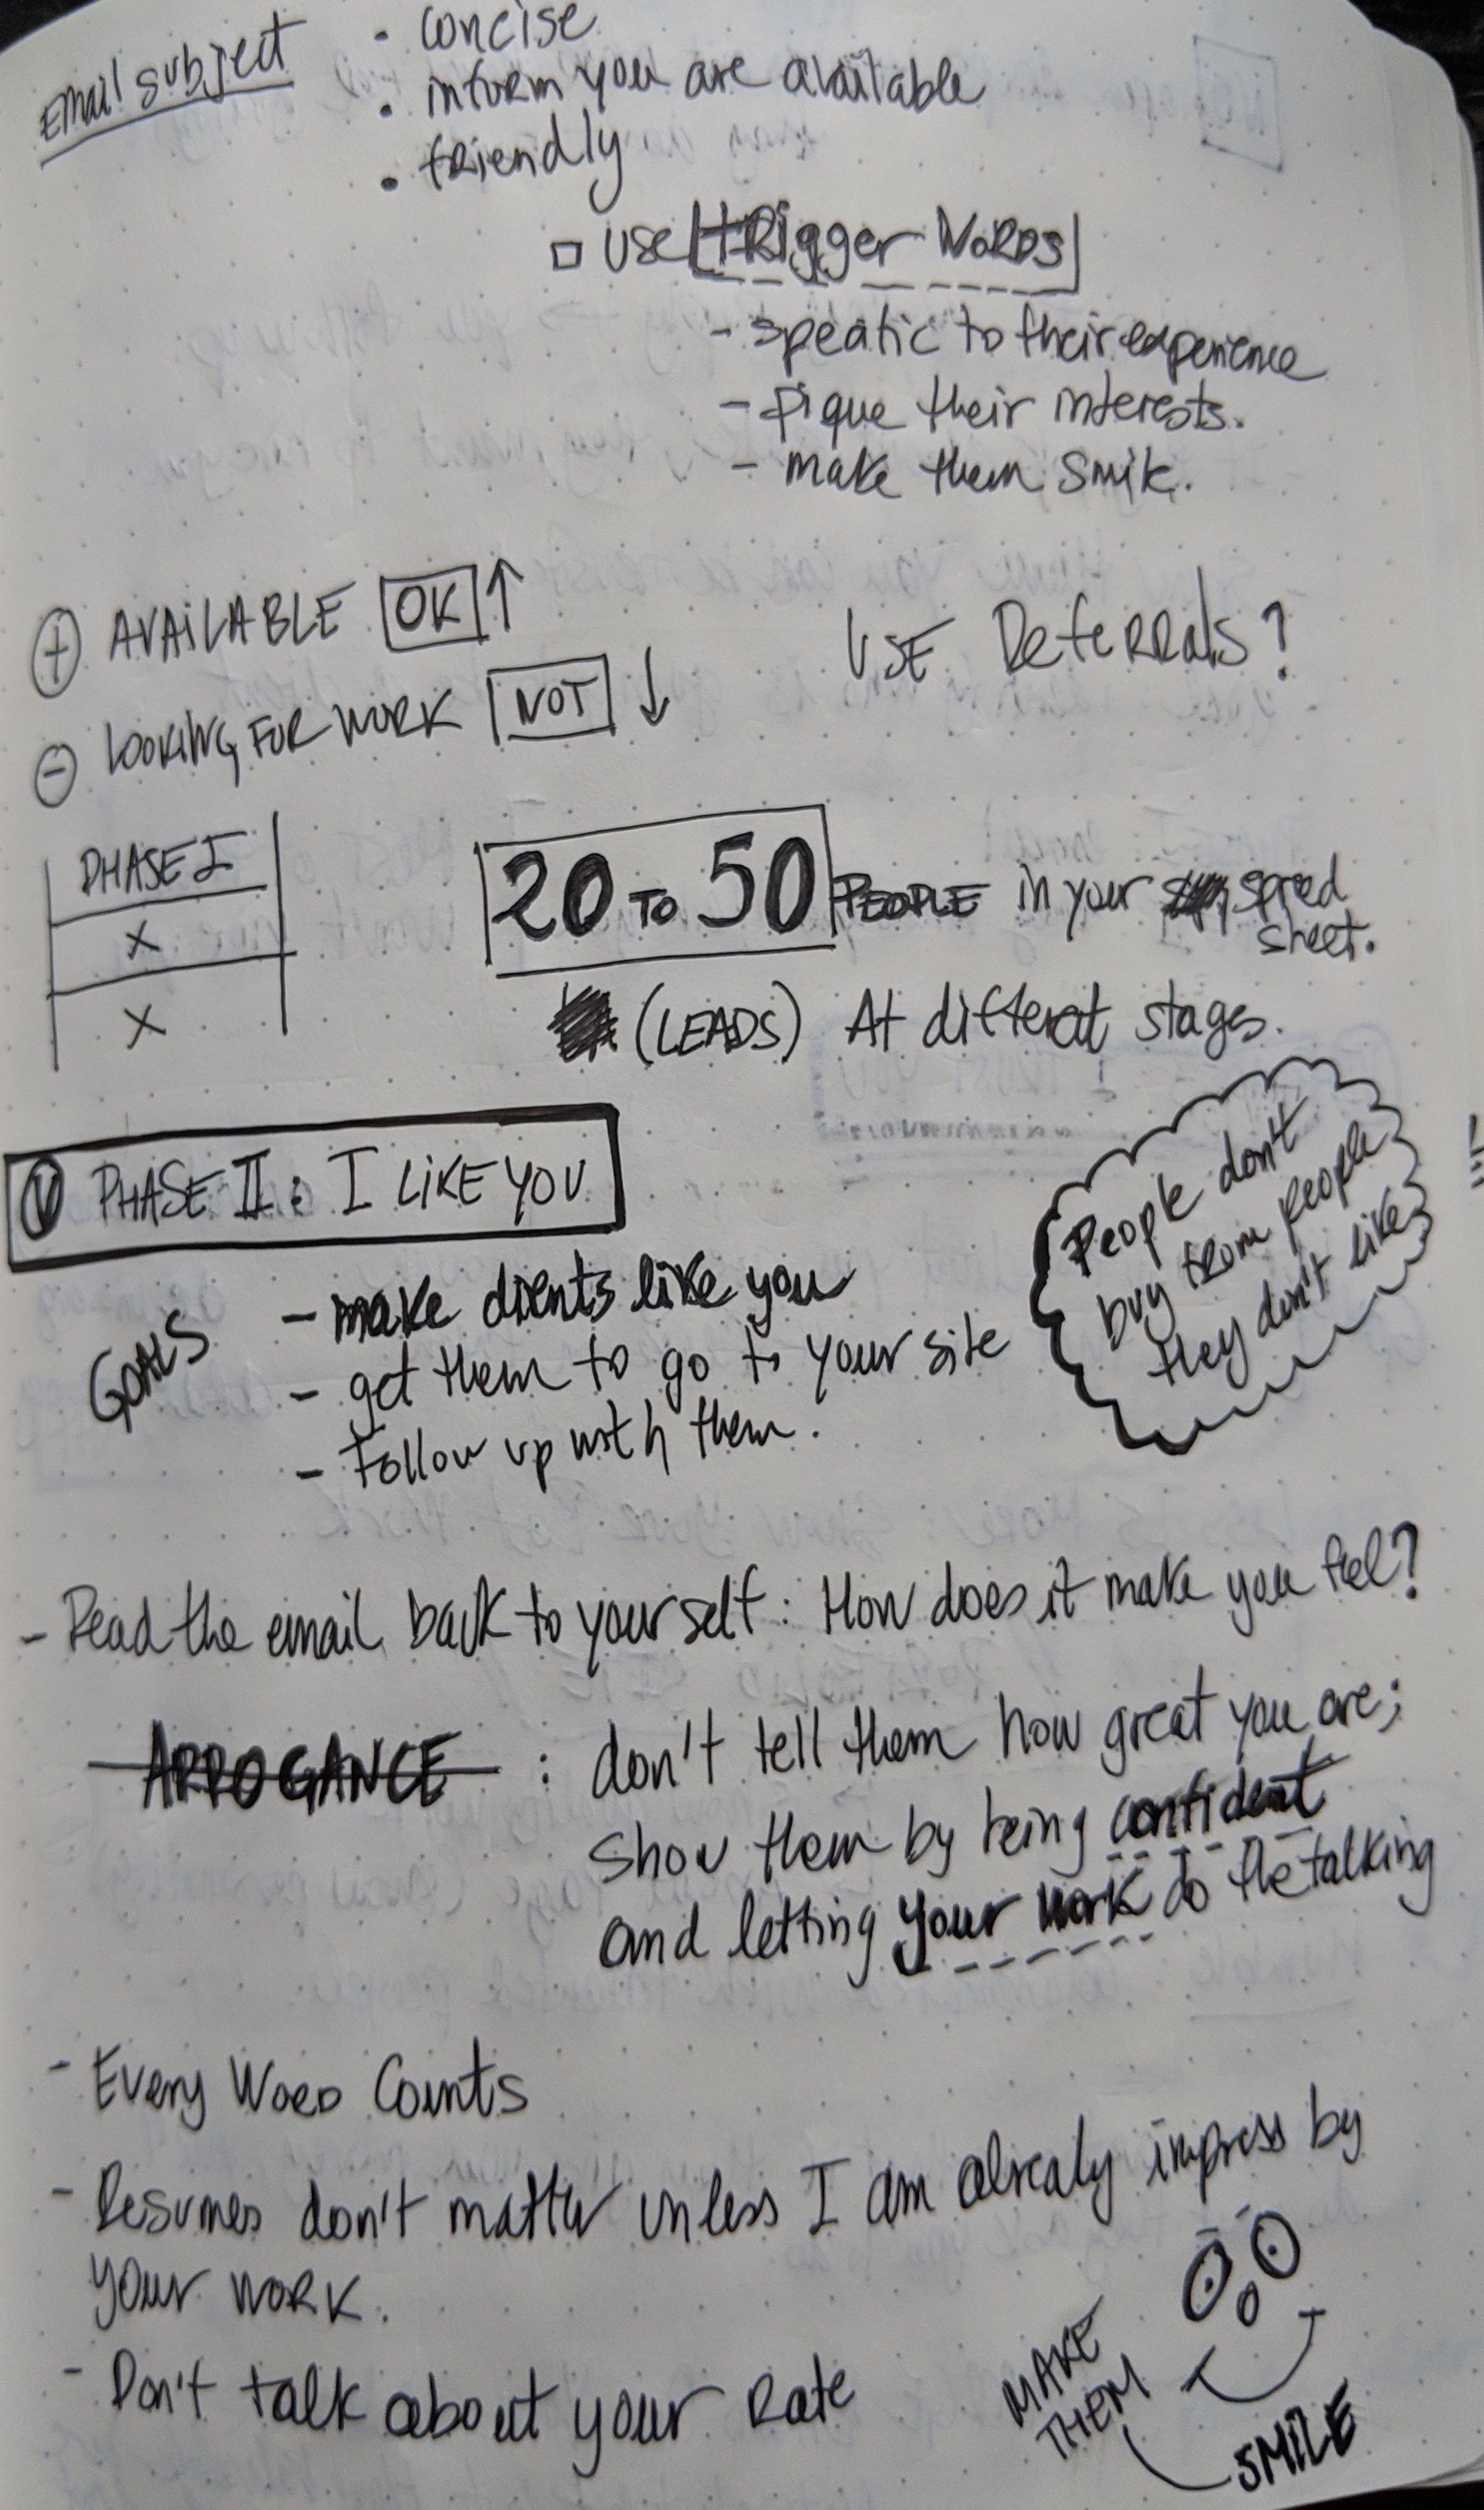 Email subject
• concise
• inform you are available
• friendly
□ use trigger words
- specific to their experience
- pique their interests.
- make them smile.
+ AVAILABLE OK ↑
- LOOKING FOR WORK NOT ↓
USE Referrals?
PHASE I
X
X
20 TO 50 PEOPLE in your spread
sheet.
(LEADS) At different stages.
PHASE II: I LIKE YOU
People don't
buy from people
they don't like
GOALS
- make clients like you
- get them to go to your site
- Follow up with them.
- Read the email back to yourself: How does it make you feel?
ARROGANCE : don't tell them how great you are;
show them by being confident
and letting your work do the talking
- Every Word Counts
- Resumes don't matter unless I am already impress by
your work.
- Don't talk about your Rate
MAKE
THEM
SMILE